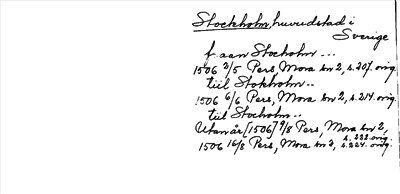 Stockholm, huvudstad i
Sverige
f. aan Stocholm ...
1506 2/5 Pers, Mora bn 2, s. 207. orig.
tiil Stokholm ..
1506 6/6 Pers, Mora bn 2, s. 214. orig.
tiil Stocholm ..
Utan år [1506] 9/8 Pers, Mora bn 2,
s. 222. orig.
1506 16/8 Pers, Mora bn 2, s. 224. orig.